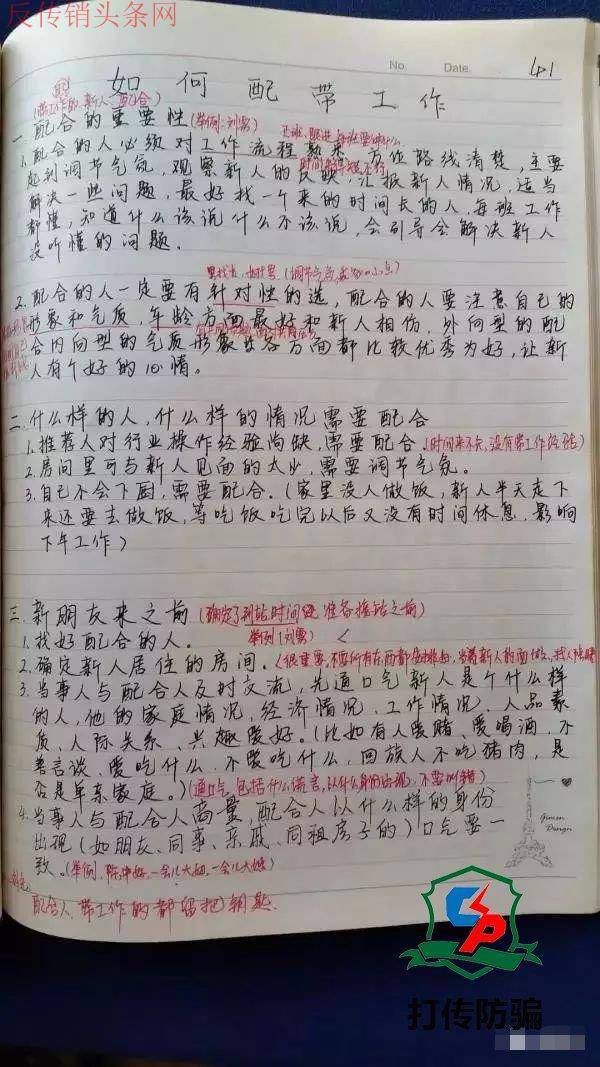 反传销头条网
No. Date. 4月1
如何配带工作
(带工作的、新人、配合)
一.配合的重要性(举例:刘雾)
1.配合的人必须对工作流程熟来,方位路线清楚,主要
起到调节气氛,观察新人的反映,汇报新人情况,适当
解决一些问题,最好找一个来的时间长的人,每班工作
都懂,知道什么该说什么不该说,会引导会解决新人
没听懂的问题。
2.配合的人一定要有针对性的选,配合的人要注意自己的
形象和气质,年龄方面最好和新人相仿,外向型的配
合内向型的气质形象各方面都比较优秀为好,让新
人有个好的心情。
二.什么样的人,什么样的情况需要配合
1.推荐人对行业操作经验尚缺,需要配合。(时间来不长,没有带工作经验)
2.房间里可与新人见面的太少,需要调节气氛。
3.自己不会下厨,需要配合。(家里没人做饭,新人半天走下
来还要去做饭,等吃饭吃完以后又没有时间休息,影响
下午工作)
三.新朋友来之前(确定了到站时间 准备接站之前)
1.找好配合的人。 举例(刘雾)
2.确定新人居住的房间。(很重要,不要所有东西都
3.当事人与配合人及时交流,先通口气新人是个什么样
的人,他的家庭情况,经济情况、工作情况、人品素
质、人际关系、兴趣爱好。(比如有人爱赌、爱喝酒,不
善言谈,爱吃什么,不爱吃什么,回族人不吃猪肉,是
否是单亲家庭。)(通口气,包括什么谎言,以什么身份出现,不要叫错)
4.当事人与配合人商量,配合人以什么样的身份
出现(如朋友、同事、亲戚、同租房子的)口气要一
致。(举例 一会儿大姐,一会儿大嫂)
配合人、带工作的都留把钥匙.
打传防骗